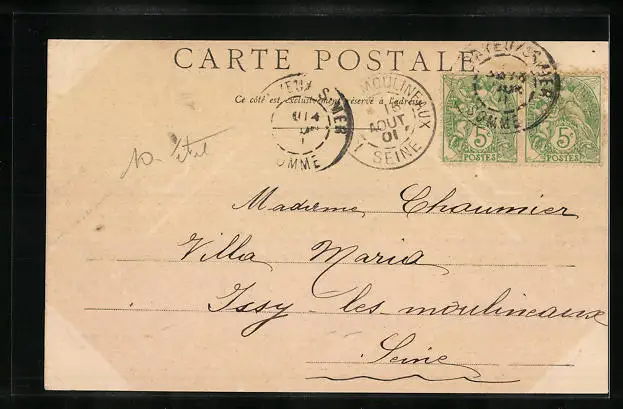 CARTE POSTALE
Ce côté est exclusivement réservé à l'adresse
MOULINEAUX
AOUT
01
SEINE
SOMME
SOMME
5c
POSTES
5c
POSTES
Madame Chaumier
Villa Maria
Issy-les-moulineaux
Seine